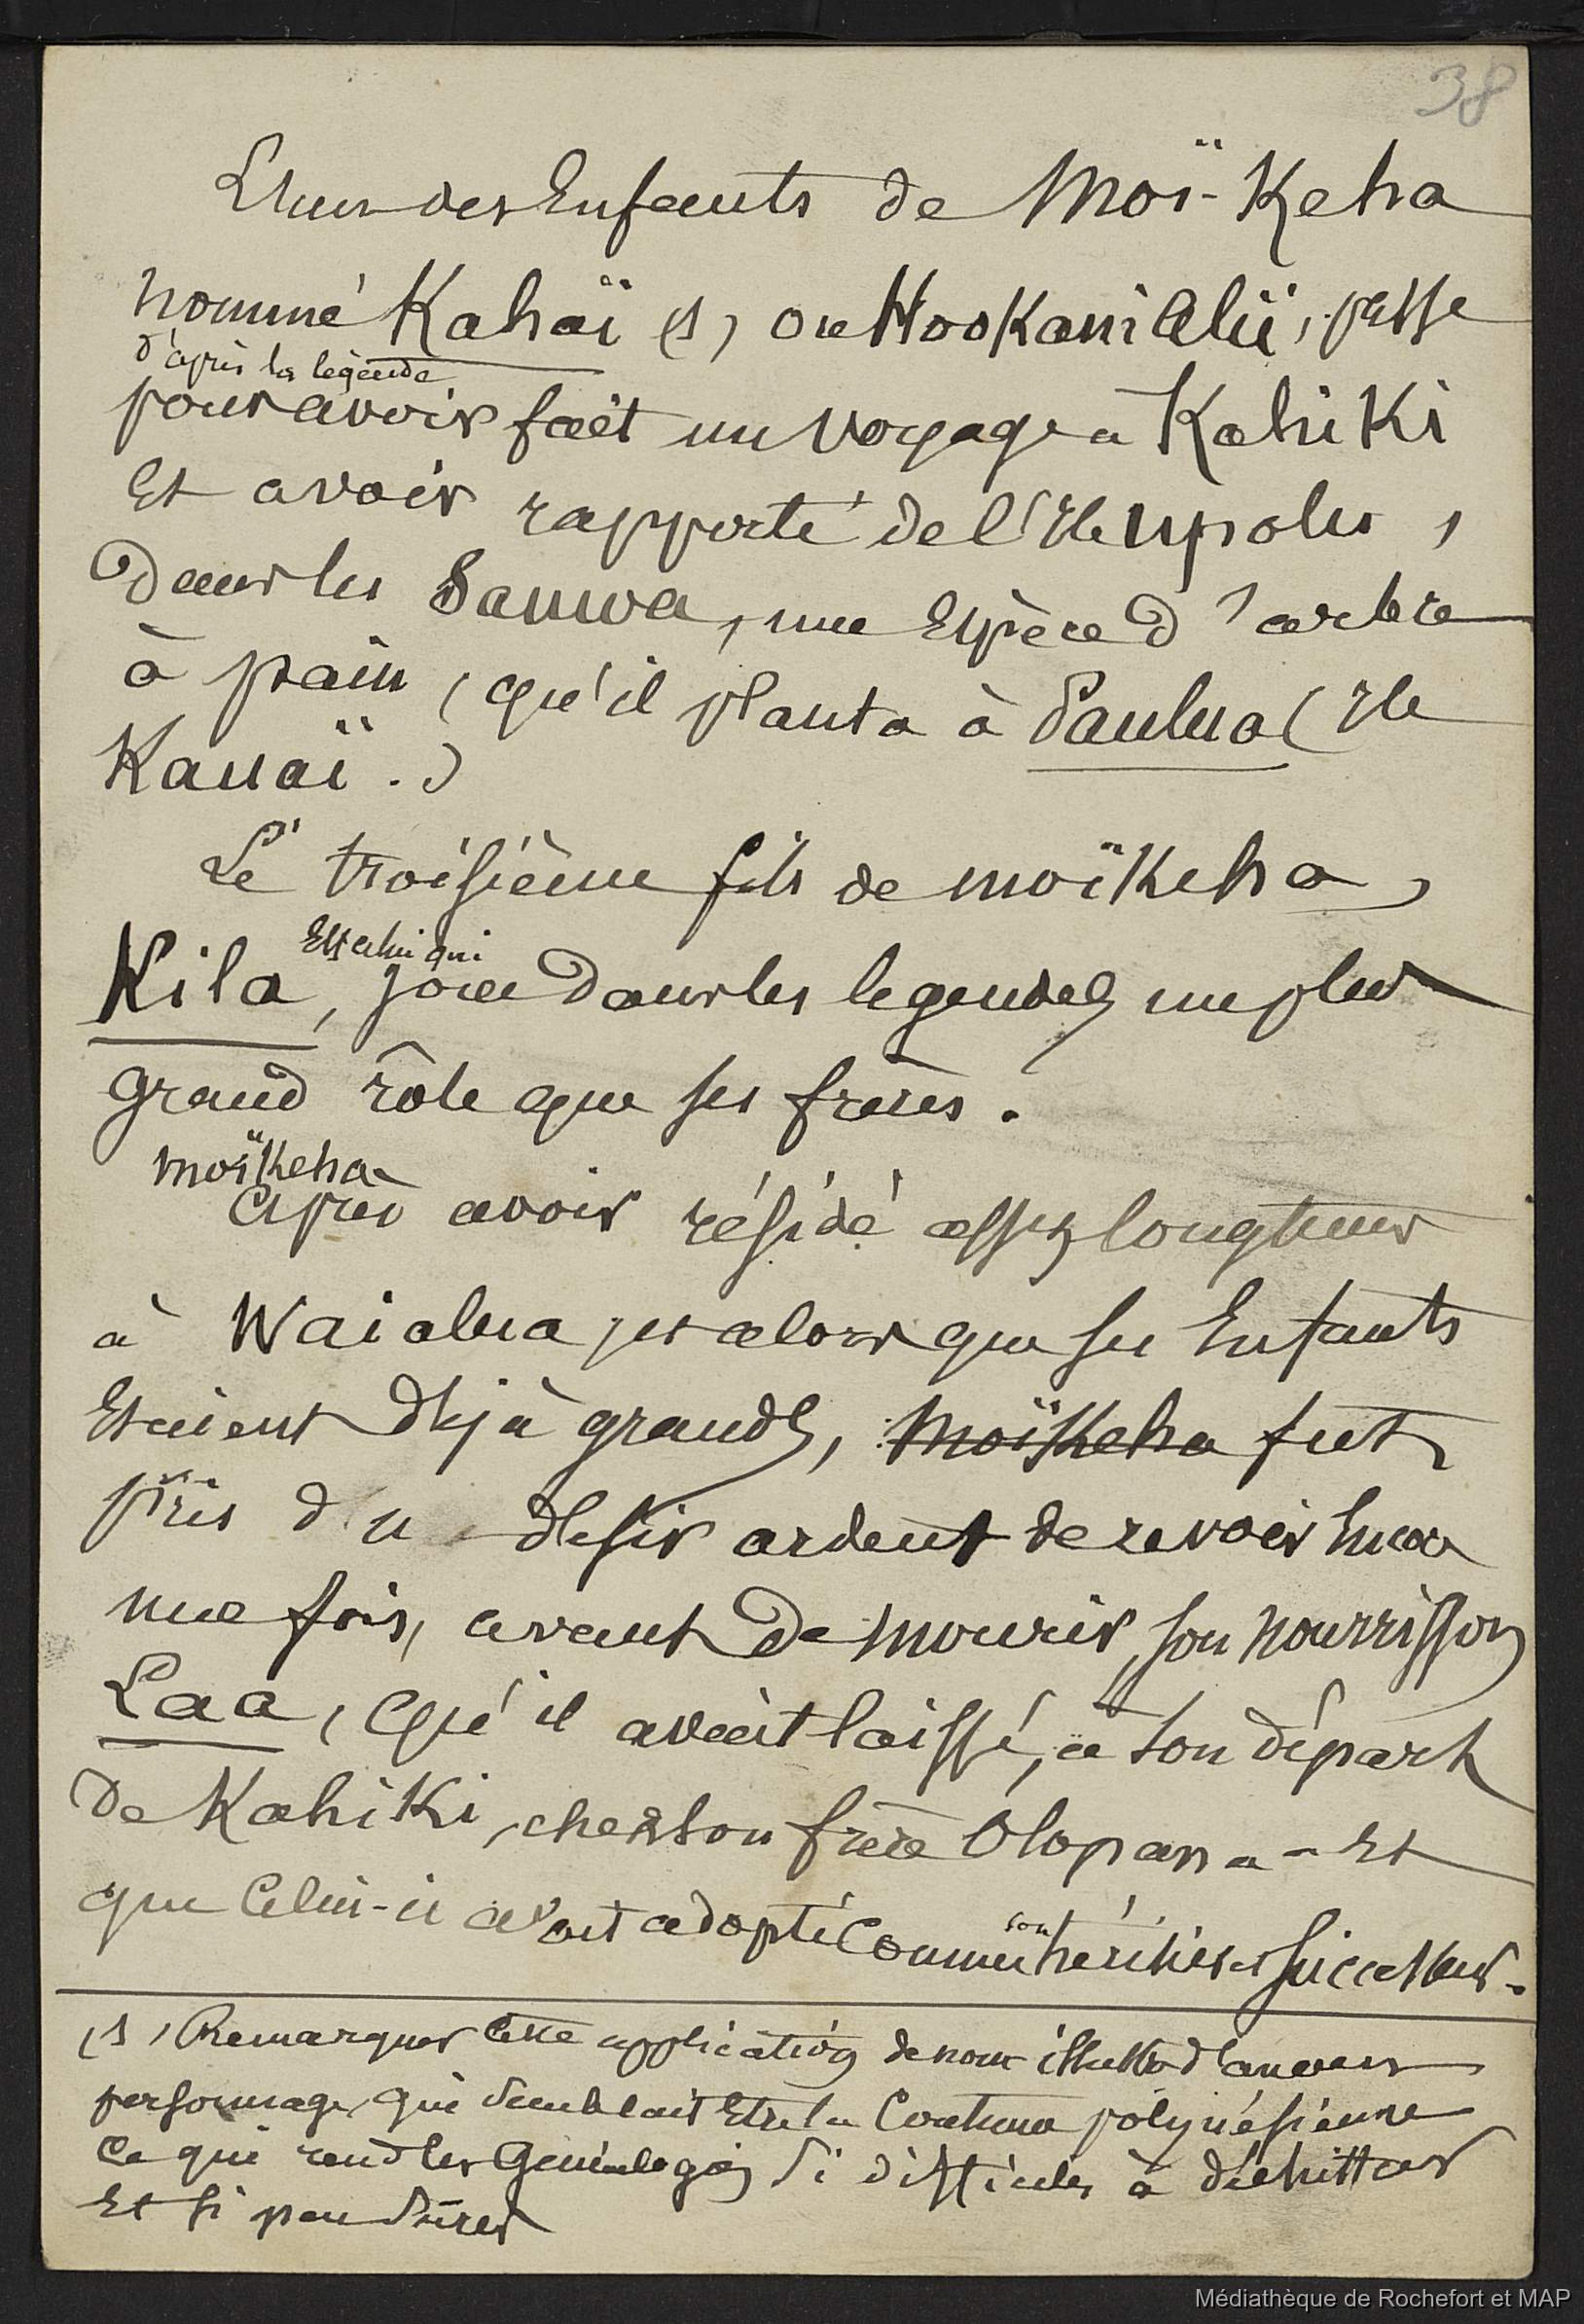 38
L'un des Enfants de Moï-Keha
nommé Kahaï (1) ou HooKaniAlii, passe
d'après la légende
pour avoir fait un voyage à KahiKi
Et avoir rapporté de l'Ile Upolu,
Dans les Samoa, une Espèce d'arbre
à pain, qu'il planta à Paulua (Ile
Kauaï.)
Le troisième fils de moïKeha,
Est celui qui
Kila, joue Dans les legendes un plus
grand rôle que ses frères.
moïKeha
Après avoir résidé assez longtems
à Waialua, et alors que ses Enfants
Etaient déjà grands, MoïKeha fut
pris d'un désir ardent de revoir Encore
une fois, avant De mourir, son nourrisson
Laa, qu'il avait laissé, à son départ
De KahiKi, chez son frère Olopana - Et
que Celui-ci avait adopté Comme
son
héritier et Successeur.
(1) Remarquer Cette application de nom illustre d'anciens
personnages qui semblait Etre la Coutume polynésienne
Ce qui rend les Généalogies si difficiles à déchiffrer
Et si peu sûres
Médiathèque de Rochefort et MAP